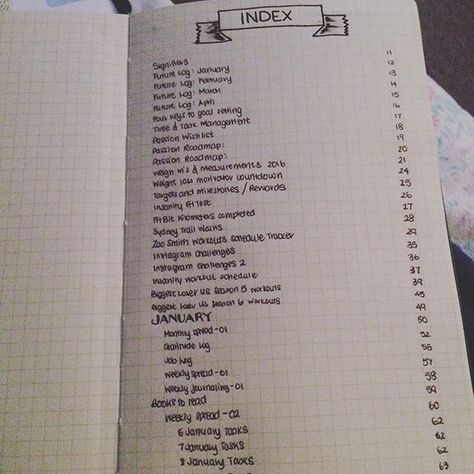 INDEX
Signifiers 11
Future Log: January 12
Future Log: February 13
Future Log: March 14
Future Log: April 15
Four keys to goal setting 16
Time & Task Management 17
Passion Wishlist 18
Passion Roadmap: 19
Passion Roadmap: 20
Weigh in's & Measurements 2016 21
Weight loss motivator countdown 24
Targets and Milestones / Rewards 25
Insanity Fit Test 26
FitBit Kilometers completed 27
Sydney Trail Walks 28
Zac Smith Workouts Schedule Tracker 29
Instagram Challenges 35
Instagram challenges 2 36
Insanity workout schedule 37
Biggest Loser US Season 5 workouts 39
Biggest Loser US Season 6 workouts 45
JANUARY 49
Monthly spread-01 50
Gratitude Log 52
Job Log 55
Weekly spread-01 57
Weekly Journaling-01 58
Books to read 59
Weekly spread-02 60
6 January Tasks 62
7 January Tasks 62
8 January Tasks 62
63